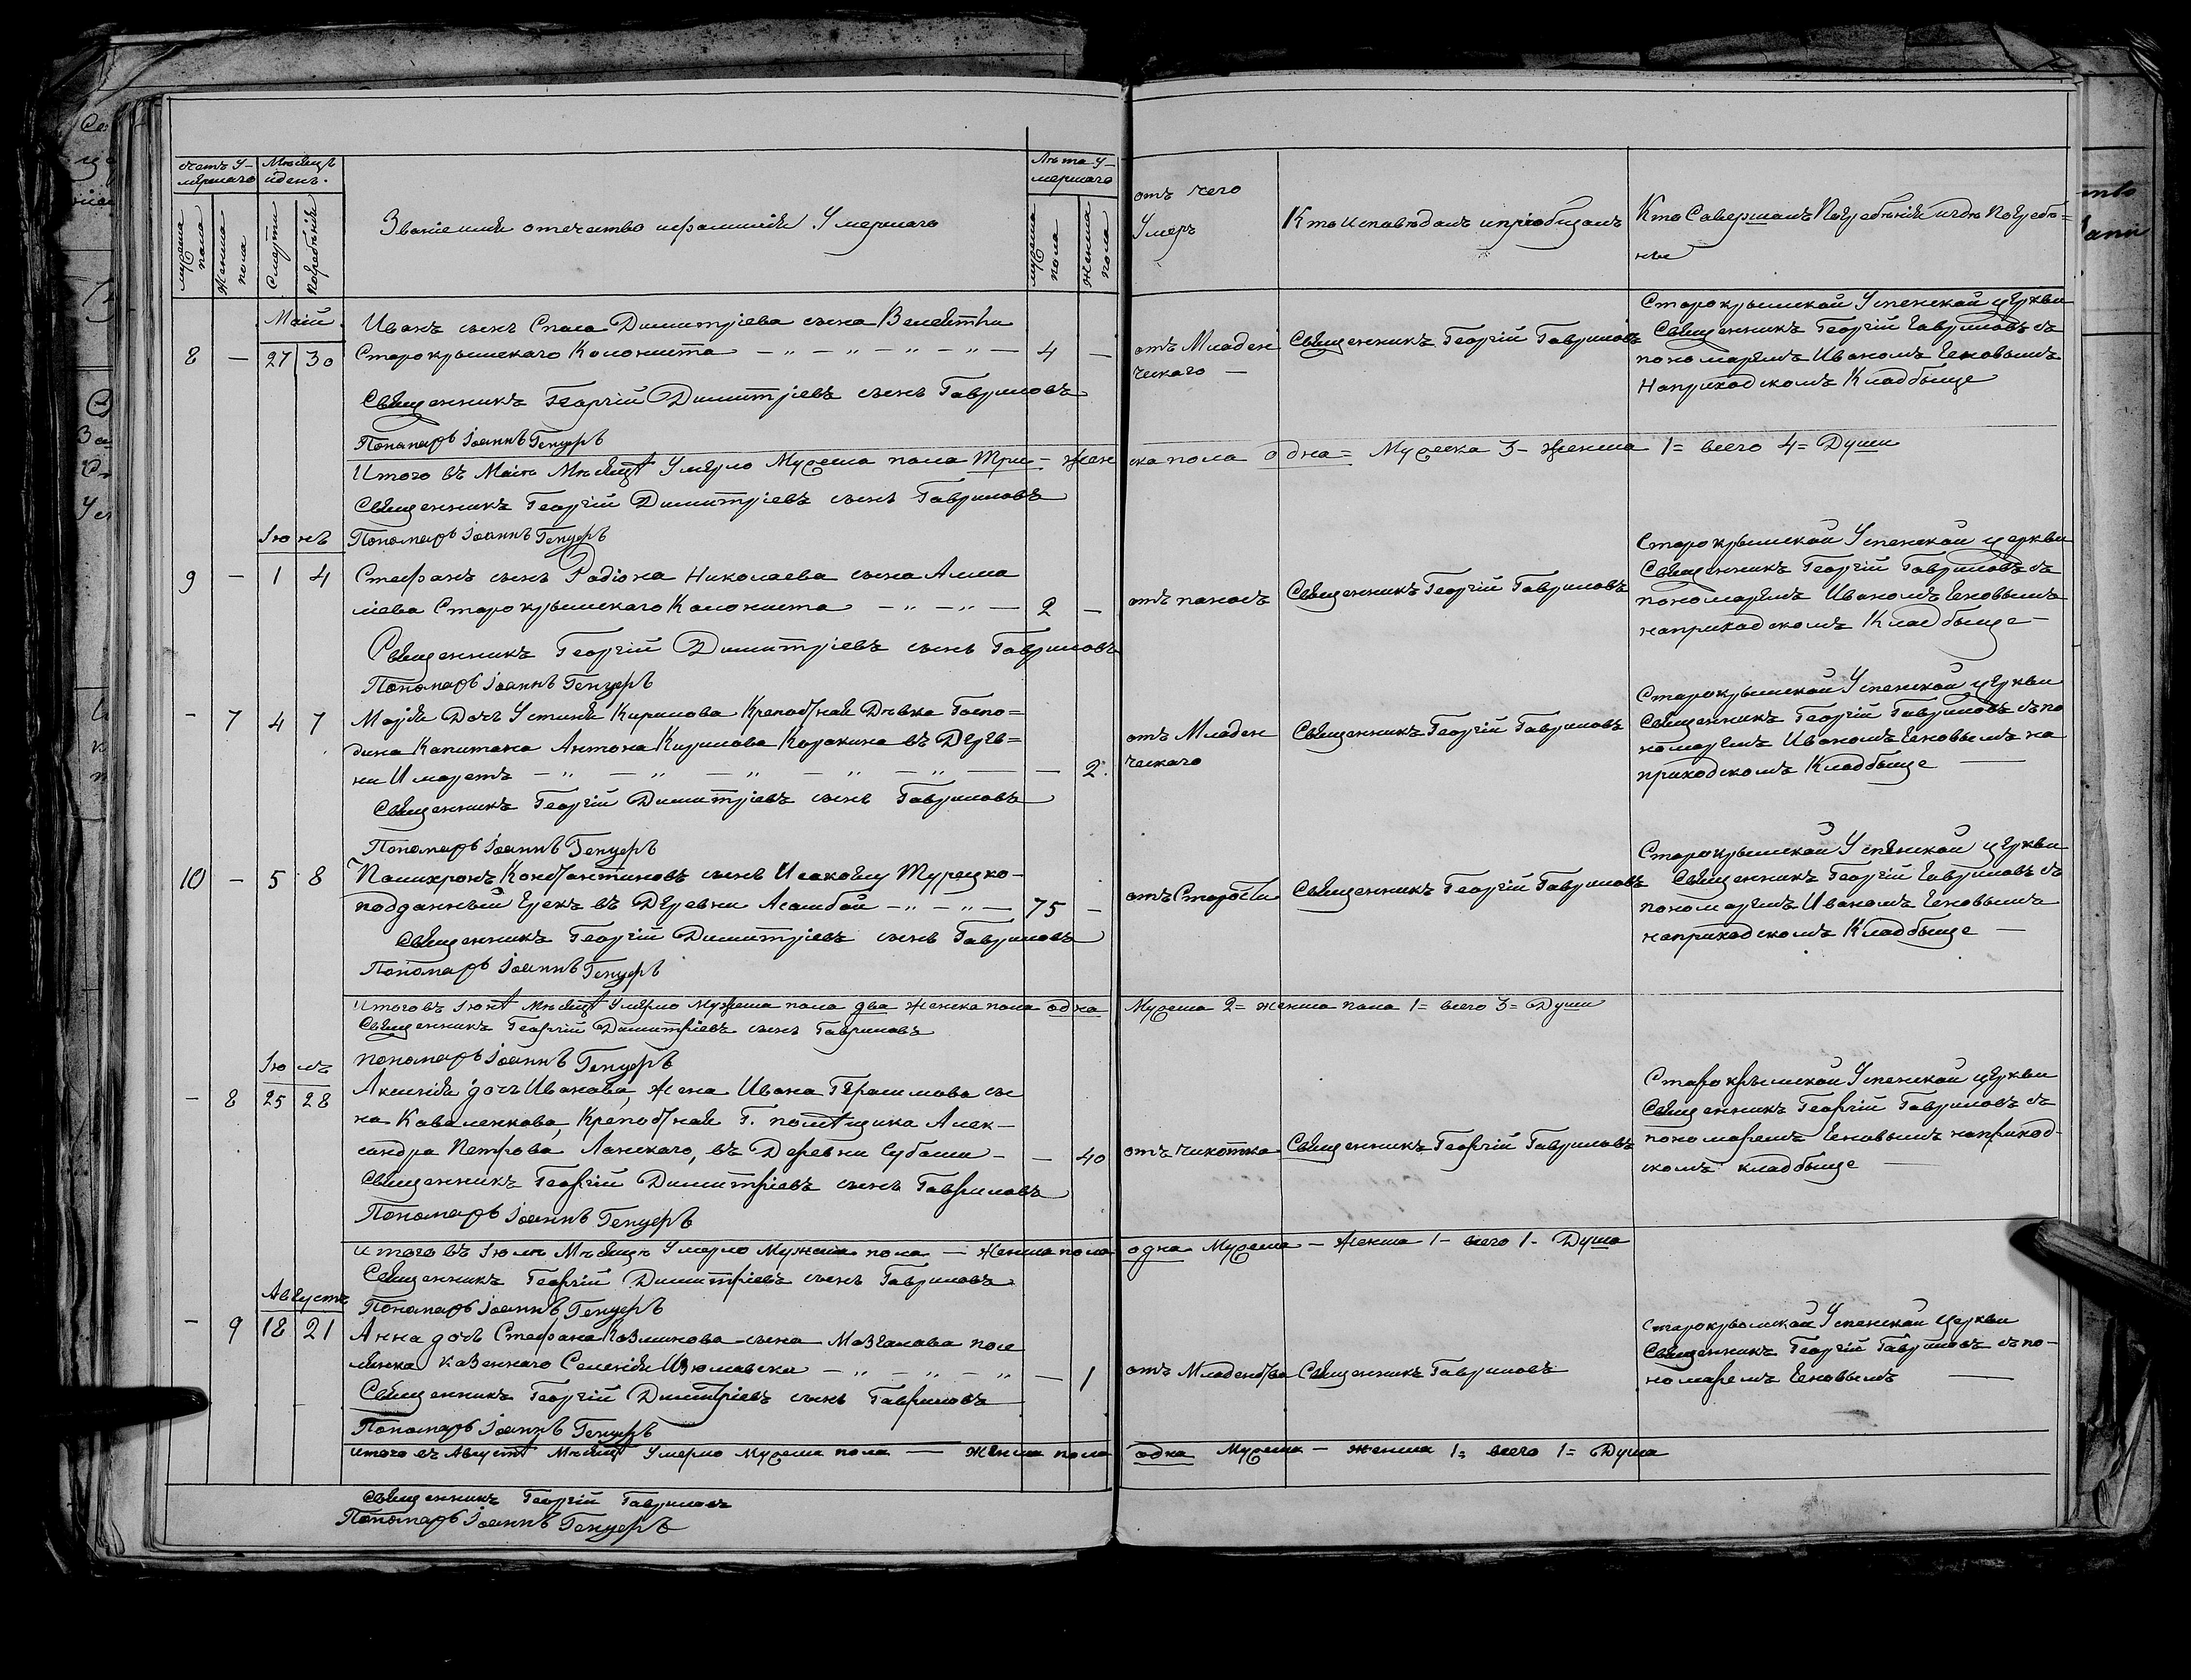 счетъ У-
мершаго
Мѣсяцъ
и день.
мужеска
пола
Женска
пола
Смерти
погребѣнія
Званіе имя отечество ифамилія Умершаго
Лѣта У-
мершаго
мужеска
пола
женска
пола
отъ чего
Умеръ
Кто Исповѣдалъ ипріобщалъ
Кто Савершалъ Погребѣніе игдѣ Погребѣ=
ны
Маій
Иванъ сынъ Спаса Димитріева сына
8 — 27 30 Старокрымскаго Колониста — „ — „ — „ — „ — 4 —
Священникъ Георгій Димитріевъ сынъ Гавриловъ
Пономарь Іоаннъ Генчеръ
отъ Младен
ческаго —
Священникъ Георгій Гавриловъ
Старокрымской Успенской церкви
Священникъ Георгій Гавриловъ съ
пономаремъ Иваномъ Геновымъ
Наприходскомъ Кладбыще
Итого въ Маіѣ Мѣсяцѣ Умерло Мужеска пола Три — Жен ска пола одна = Мужеска 3 — Женска 1 = всего 4 = Души
Священникъ Георгій Димитріевъ сынъ Гавриловъ
Іюнь
Пономарь Іоаннъ Генчеръ
9 — 1 4 Стефанъ сынъ Радіона Николаева сына Алма
лiева Старокрымскаго Колониста — „ — „ — 2 —
Священникъ Георгій Димитріевъ сынъ Гавриловъ
Пономарь Іоаннъ Генчеръ
отъ поносъ
Священникъ Георгій Гавриловъ
Старокрымской Успенской церкви
Священникъ Георгій Гавриловъ съ
пономаремъ Иваномъ Геновымъ
наприходскомъ Кладбыще —
— 7 4 7 Марія Дочъ Устиніи Кирилова Крепостнай Дѣвка Госпо=
дина Капитана Антона Кирилова Коракина въ Дерев=
ни Имаретъ — „ — „ — „ — „ — „ — — 2.
Священникъ Георгій Димитріевъ сынъ Гавриловъ
Пономарь Іоаннъ Генчеръ
отъ Младен
ческаго
Священникъ Георгій Гавриловъ
Старокрымской Успенской церкви
Священникъ Георгій Гавриловъ съ по
номаремъ Иваномъ Геновымъ на
приходскомъ Кладбыще —
10 — 5 8 Полихронъ Константиновъ сынъ Турецко-
подданный Грекъ въ Деревни Асамбай — „ — „ — 75 —
Священникъ Георгій Димитріевъ сынъ Гавриловъ
Пономарь Іоаннъ Генчеръ
отъ Старости
Священникъ Георгій Гавриловъ
Старокрымской Успенской церкви
Священникъ Георгій Гавриловъ съ
пономаремъ Иваномъ Геновымъ
наприходскомъ Кладбыще —
Итого въ Іюнѣ Мѣсяцѣ Умерло Мужеска пола два Женска пола одна Мужеска 2 = женска пола 1 = всего 3 = Души
Священникъ Георгій Димитріевъ сынъ Гавриловъ
Іюль
пономарь Іоаннъ Генчеръ
— 8 25 28 Аксинія дочъ Иванова, Жена Ивана Герасимова сы
на Каваленкова, Крепостнай Г. помѣщика Алек-
сандра Петрова Ланскаго, въ Деревни Субаши — — 40
Священникъ Георгій Димитріевъ сынъ Гавриловъ
Пономарь Іоаннъ Генчеръ
отъ чихотка
Священникъ Георгій Гавриловъ
Старокрымской Успенской церкви
Священникъ Георгій Гавриловъ съ
пономаремъ Геновымъ наприход-
скомъ кладбыще —
итого въ Іюлѣ Мѣсяцѣ Умерло Мужеска пола — Женска пола одна Мужеска — Женска 1 — всего 1 - Душа
Священникъ Георгій Димитріевъ сынъ Гавриловъ
Августъ
Пономарь Іоаннъ Генчеръ
— 9 18 21 Анна дочъ Стефана Козминова сына посе
лянка Казеннаго Селенія Изюмавска — „ — „ — „ — 1
Священникъ Георгій Димитріевъ сынъ Гавриловъ
Пономарь Іоаннъ Генчеръ
отъ Младенства
Священникъ Гавриловъ
Старокрымской Успенской Церкви
Священникъ Георгій Гавриловъ съ по-
номаремъ Геновымъ —
итого въ Августѣ Мѣсяцѣ Умерло Мужеска пола — Женска пола одна Мужеска — женска 1 = всего 1 = Душа
Священникъ Георгій Гавриловъ
Пономарь Іоаннъ Генчеръ